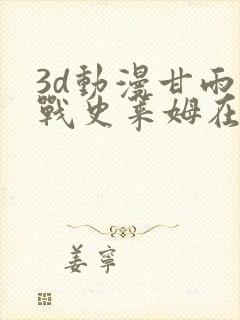 3d動漫甘雨
戰史萊姆在
姜寧